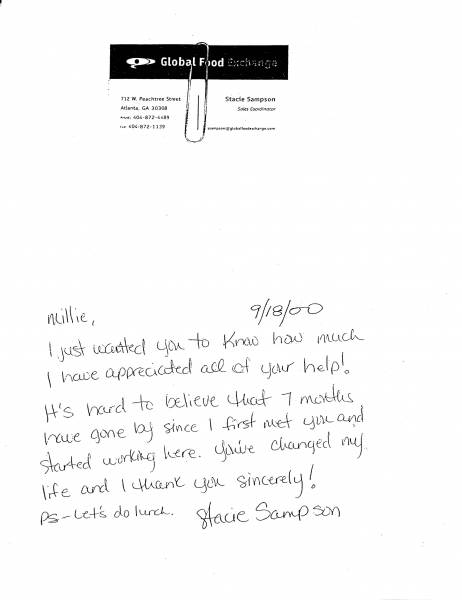 Global Food Exchange
712 W. Peachtree Street
Atlanta, GA 30308
404-872-4489
404-872-1139
Stacie Sampson
Sales Coordinator
sampson@globalfoodexchange.com
Millie,
9/18/00
I just wanted you to know how much
I have appreciated all of your help!
It's hard to believe that 7 months
have gone by since I first met you and
started working here. You've changed my
life and I thank you sincerely!
PS - Let's do lunch.
Stacie Sampson